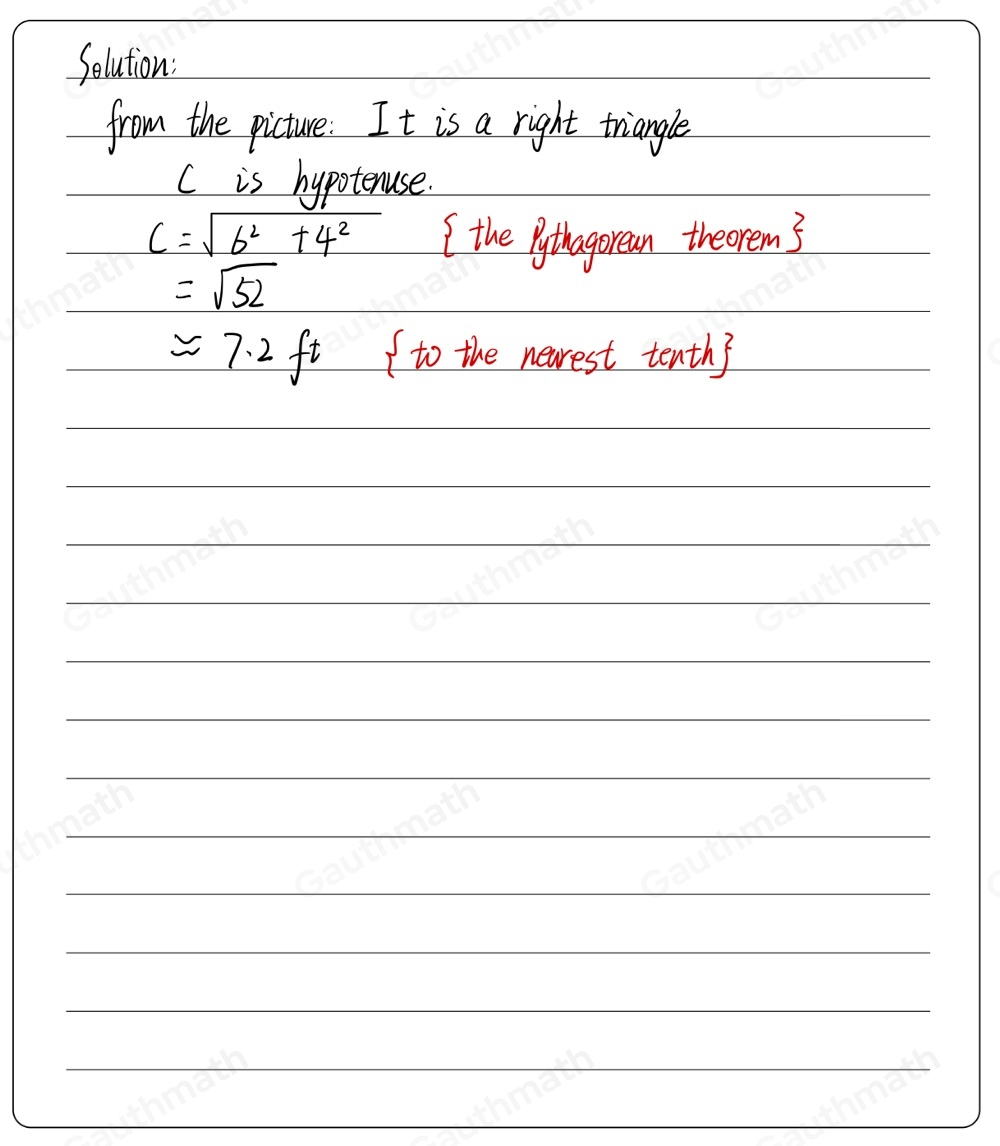 Solution:
from the picture: It is a right triangle
C is hypotenuse.
C = √(6² + 4²) { the Pythagorean theorem }
= √52
≈ 7.2 ft { to the nearest tenth }
Gauthmath